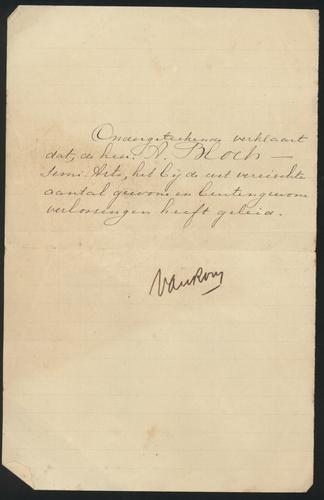 Ondergeteekende verklaart
dat, de heer A. Bloch —
Semi-Arts, het bij de wet vereischte
aantal gewone en buitengewone
verlossingen heeft geleid.